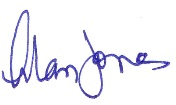 Alan Jones